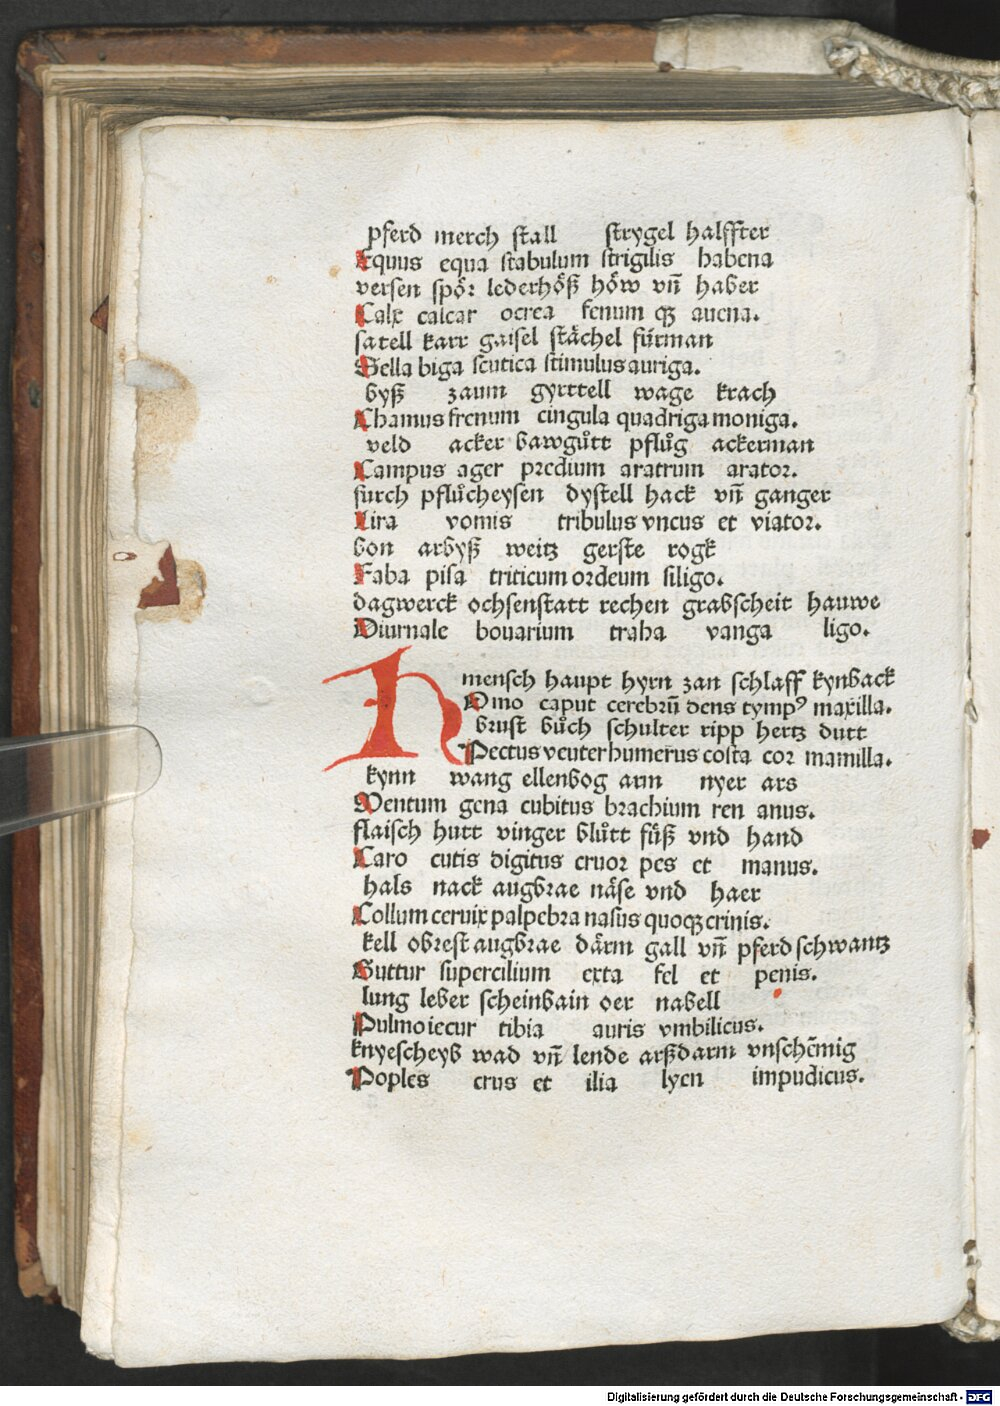 pferd merch stall strygel halffter
Equus equa stabulum strigilis habena
versen spör lederhöß höw vñ haber
Calx calcar ocrea fenum qꝫ auena.
satell karr gaisel stächel fürman
Sella biga scutica stimulus auriga.
byß zaum gyrttell wage krach
Chamus frenum cingula quadriga moniga.
veld acker bawgůtt pflůg ackerman
Campus ager predium aratrum arator.
furch pflůcheysen dystell hack vñ ganger
Lira vomis tribulus vncus et viator.
bon arbyß weitz gerste rogk
Faba pisa triticum ordeum siligo.
dagwerck ochsenstatt rechen grabscheit hauwe
Diurnale bouarium traha vanga ligo.
mensch haupt hyrn zan schlaff kynback
HOmo caput cerebrū dens tympꝰ maxilla.
brust bůch schulter ripp hertz dutt
Pectus venter humerus costa cor mamilla.
kynn wang ellenbog arm nyer ars
Mentum gena cubitus brachium ren anus.
flaisch hutt vinger blůtt füß vnd hand
Caro cutis digitus cruor pes et manus.
hals nack augbrae näse vnd haer
Collum ceruix palpebra nasus quoqꝫ crinis.
kell obrest augbrae därm gall vñ pferd schwantz
Guttur supercilium exta fel et penis.
lung leber scheinbain oer nabell
Pulmo iecur tibia auris vmbilicus.
knyescheyb wad vñ lende arßdarm vnschēmig
Poples crus et ilia lyen impudicus.
Digitalisierung gefördert durch die Deutsche Forschungsgemeinschaft - DFG